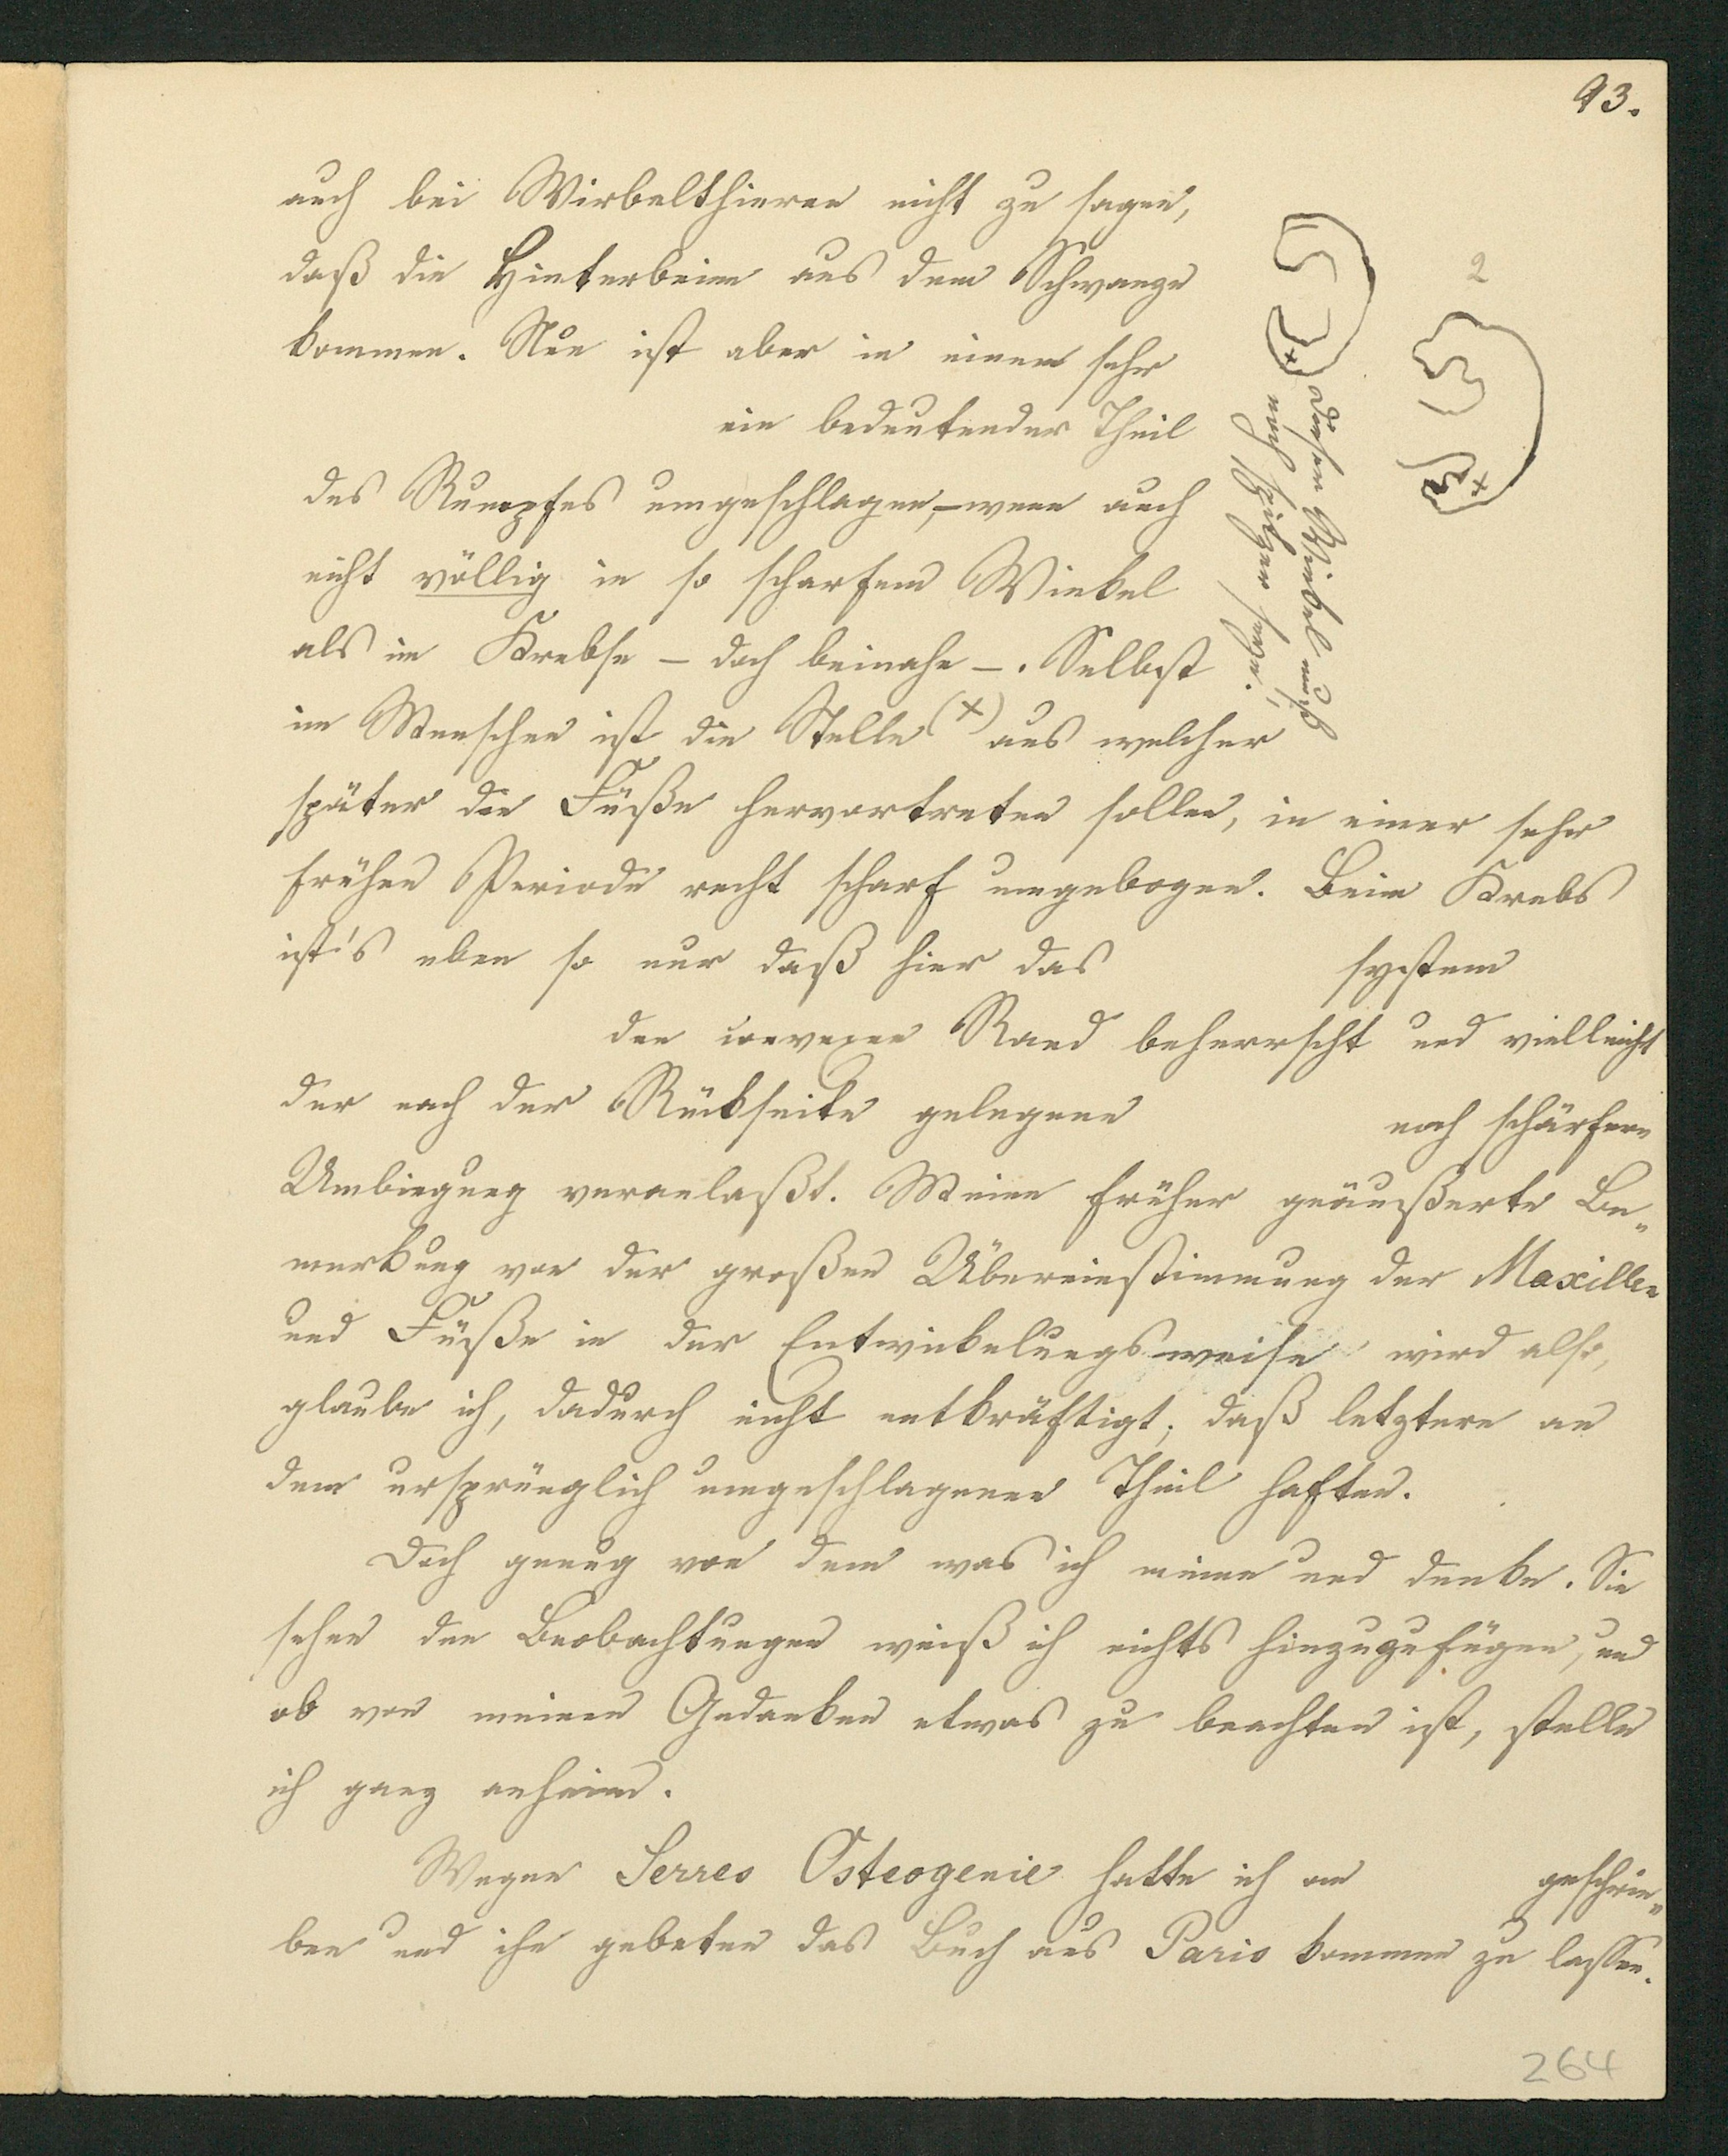 93.
auch bei Wirbelthieren nicht zu sagen,
daß die Hinterbeine aus dem Schwanze
kommen. Nun ist aber in einem sehr
ein bedeutender Theil
des Rumpfes umgeschlagen, – wenn auch
nicht völlig in so scharfem Winkel
als im Krebse – doch beinahe –. Selbst
im Menschen ist die Stelle (x) aus welcher
später die Füße hervortreten sollen, in einer sehr
frühen Periode recht scharf umgebogen. Beim Krebs
ist's eben so nur daß hier das system
den convexen Rand beherrscht und vielleicht
der nach der Rückseite gelegene noch schärfere
Umbiegung veranlaßt. Meine früher geäußerte Be-
merkung von der großen Übereinstimmung der Maxillen
und Füße in der Entwickelungsweise wird also,
glaube ich, dadurch nicht entkräftigt, daß letztere an
dem ursprünglich umgeschlagenen Theil haften.
Doch genug von dem was ich meine und denke. Sie
sehen den Beobachtungen weiß ich nichts hinzuzufügen, und
ob von meinen Gedanken etwas zu beachten ist, stelle
ich ganz anheim.
Wegen Serres Osteogenie hatte ich an geschrie-
ben und ihn gebeten das Buch aus Paris kommen zu lassen.
2
x
x
dieser Winkel muß
noch spitzer seyn.
264